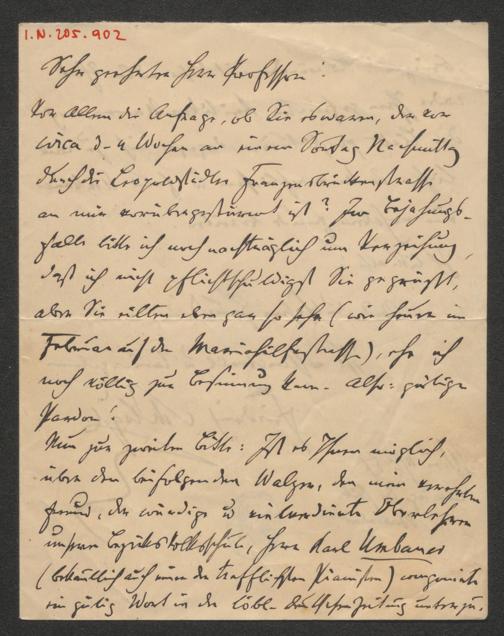 I.N. 205.902
Sehr geehrter Herr Professor!
Vor Allem die Anfrage, ob Sie es waren, der vor
circa 3-4 Wochen an einem Sonntag Nachmittag
durch die Leopoldstädter Franzensbrückenstrasse
an mir vorübergestürmt ist? Im Bejahungs-
falle bitte ich noch nachträglich um Verzeihung,
daß ich nicht pflichtschuldigst Sie gegrüßt,
aber Sie eilten eben gar so sehr (wie heuer im
Februar auf der Mariahilferstrasse), ehe ich
noch völlig zur Besinnung kam. Also: gütigen
Pardon!
Nun zur zweiten Bitte: Ist es Ihnen möglich,
über den beifolgenden Walzer, den mein verehrter
Freund, der würdige u vielverdiente Oberlehrer
unserer Bezirksvolksschule, Herr Karl Umbauer
(bekanntlich auch einer der trefflichsten Pianisten) componirte
ein gütig Wort in der löbl. deutschen Zeitung